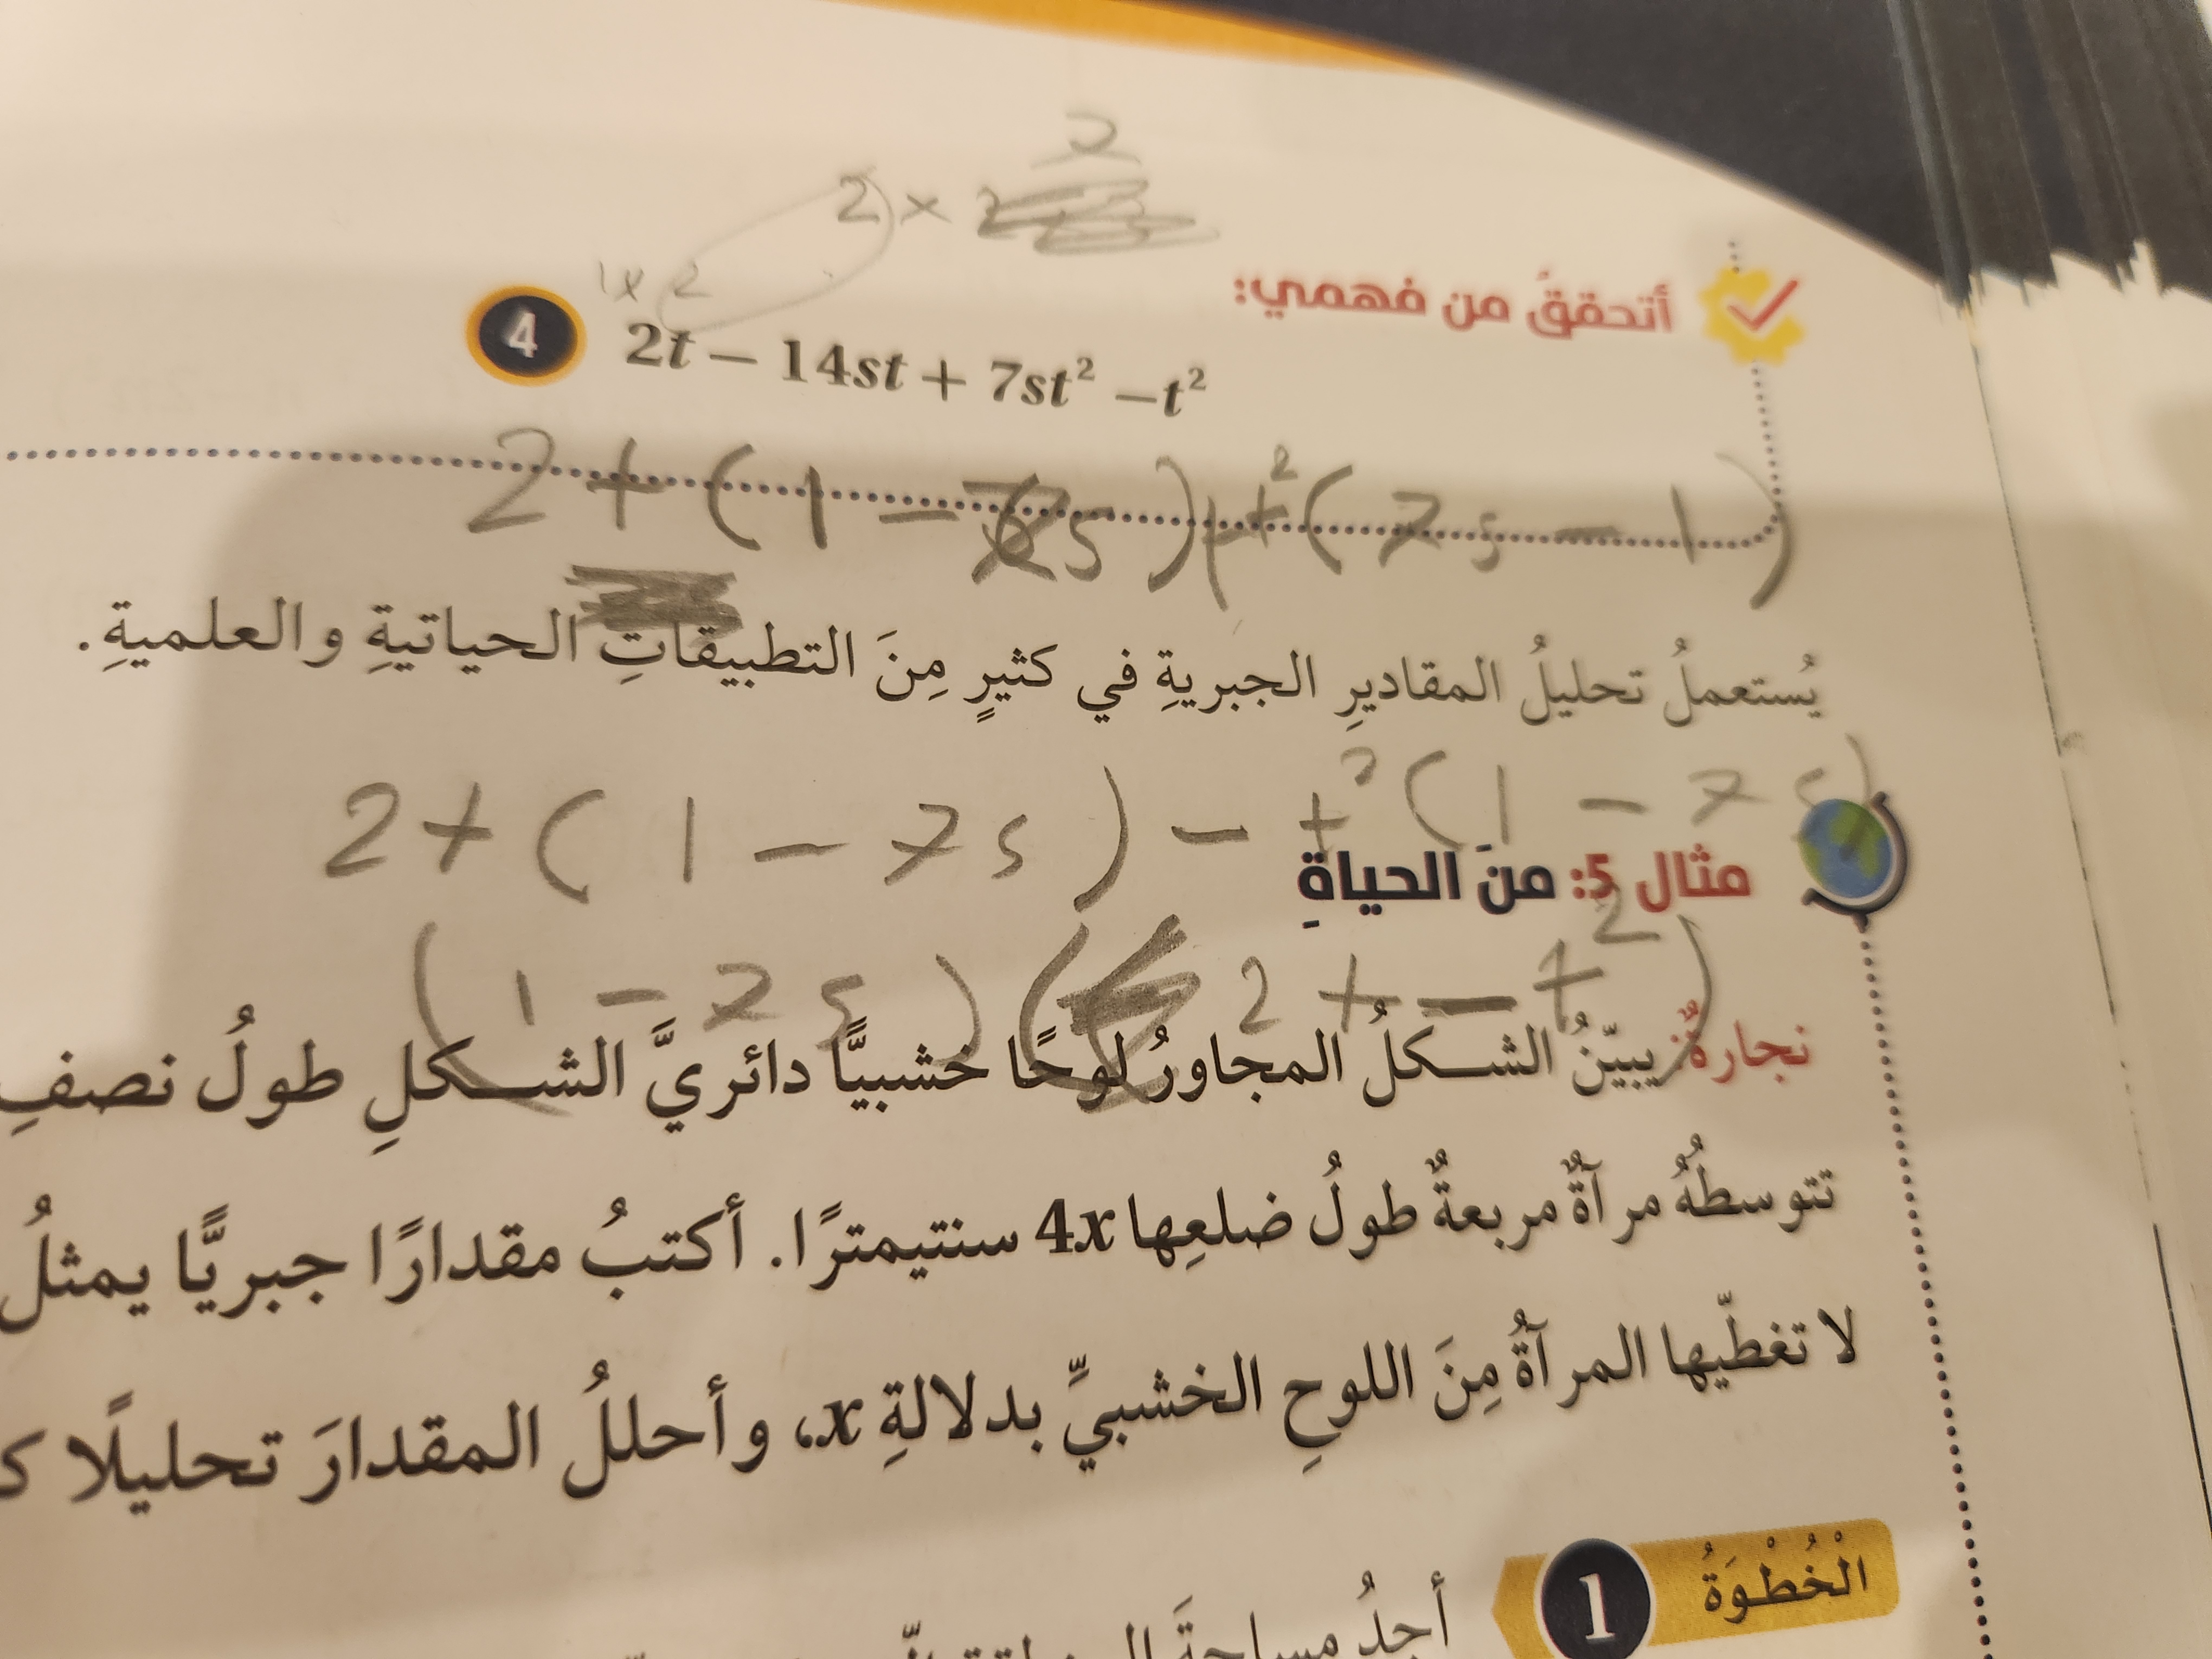 2
2 × 2
1 × 2
أتحققُ من فهمي:
4 2t – 14st + 7st² –t²
2t (1 – 7s) + t² (7s – 1)
يُستعملُ تحليلُ المقاديرِ الجبريةِ في كثيرٍ مِنَ التطبيقاتِ الحياتيةِ والعلميةِ.
2t (1 – 7s) – t² (1 – 7s)
مثال 5: منَ الحياةِ
(1 – 7s) (2t – t²)
نجارةٌ: يبيّنُ الشكلُ المجاورُ لوحًا خشبيًّا دائريَّ الشكلِ طولُ نصفِ
تتوسطُهُ مرآةٌ مربعةٌ طولُ ضلعِها 4x سنتيمترًا. أكتبُ مقدارًا جبريًّا يمثلُ
لا تغطّيها المرآةُ مِنَ اللوحِ الخشبيِّ بدلالةِ x، وأحللُ المقدارَ تحليلًا
الْخُطْوَةُ 1
أجدُ مساحةَ